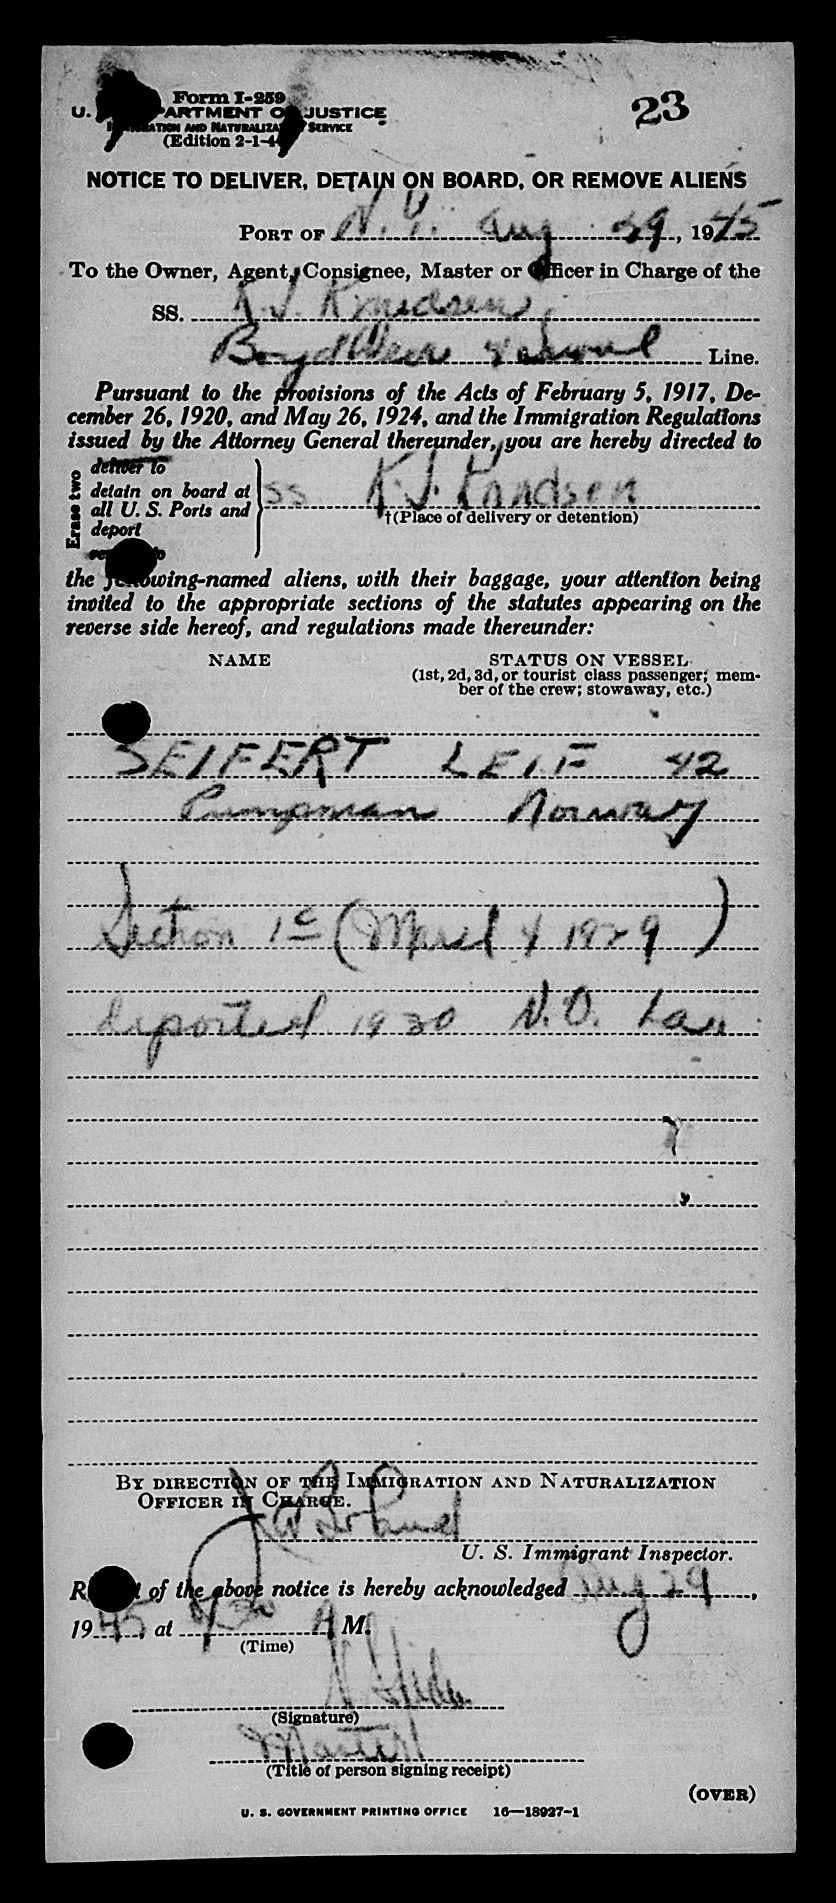 Form I-259
23
U. S. DEPARTMENT OF JUSTICE
IMMIGRATION AND NATURALIZATION SERVICE
(Edition 2-1-4
NOTICE TO DELIVER, DETAIN ON BOARD, OR REMOVE ALIENS
PORT OF N.Y. Aug 29, 1945
To the Owner, Agent, Consignee, Master or Officer in Charge of the
SS. K.J. Knudsen
Boyd Line.
Pursuant to the provisions of the Acts of February 5, 1917, De-
cember 26, 1920, and May 26, 1924, and the Immigration Regulations
issued by the Attorney General thereunder, you are hereby directed to
Erase two
deliver to
detain on board at
all U. S. Ports and
deport
remove to
SS K.J. Knudsen
†(Place of delivery or detention)
the following-named aliens, with their baggage, your attention being
invited to the appropriate sections of the statutes appearing on the
reverse side hereof, and regulations made thereunder:
NAME STATUS ON VESSEL
(1st, 2d, 3d, or tourist class passenger; mem-
ber of the crew; stowaway, etc.)
SEIFERT LEIF 42
Pumpman Norway
Section 1c (March 4 1929)
deported 1930 N.O. La
BY DIRECTION OF THE IMMIGRATION AND NATURALIZATION
OFFICER IN CHARGE.
U. S. Immigrant Inspector.
Receipt of the above notice is hereby acknowledged Aug 29,
1945, at 30 A M.
(Time)
(Signature)
Master
(Title of person signing receipt)
(OVER)
U. S. GOVERNMENT PRINTING OFFICE 16—18927-1